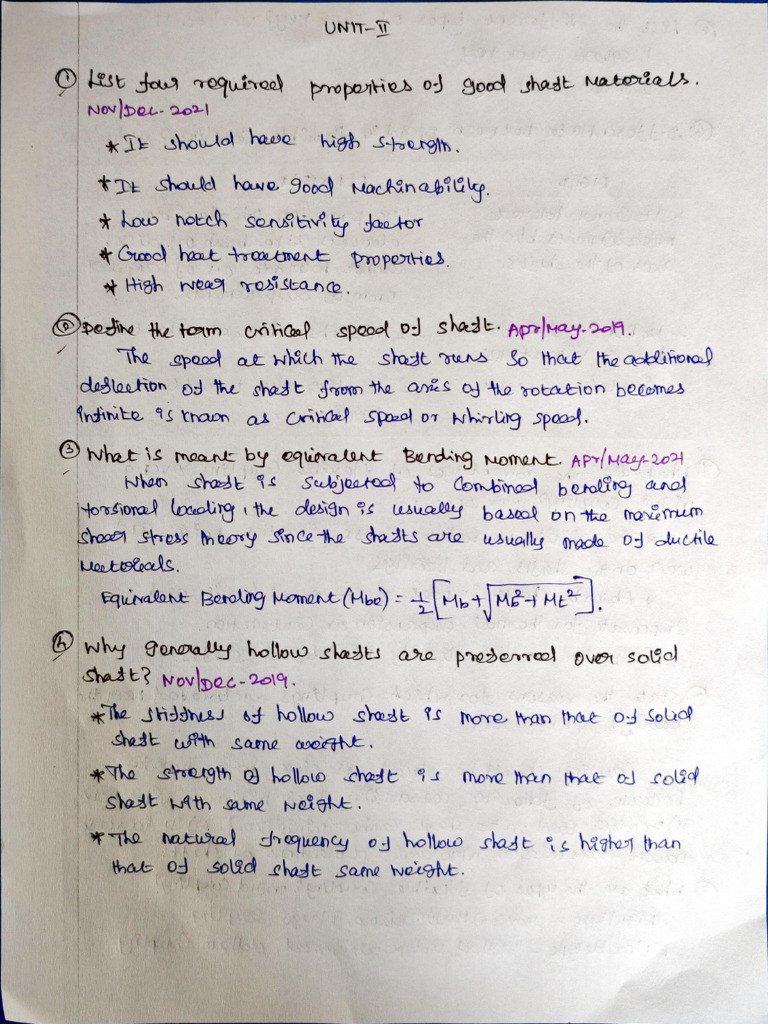 UNIT-II
① List four required properties of good shaft Materials.
Nov/Dec-2021
* It should have high strength.
* It should have good Machinability.
* Low notch sensitivity factor
* Good heat treatment properties.
* High wear resistance.
② Define the term critical speed of shaft. Apr/May-2019.
The speed at which the shaft runs so that the additional
deflection of the shaft from the axis of the rotation becomes
infinite is known as critical speed or whirling speed.
③ What is meant by equivalent Bending Moment. Apr/May-2021
When shaft is subjected to combined bending and
torsional loading, the design is usually based on the maximum
shear stress theory since the shafts are usually made of ductile
Materials.
Equivalent Bending Moment (Mbe) = 1/2 [Mb + √(Mb² + Mt²)].
④ Why generally hollow shafts are preferred over solid
shaft? Nov/Dec-2019.
* The stiffness of hollow shaft is more than that of solid
shaft with same weight.
* The strength of hollow shaft is more than that of solid
shaft with same weight.
* The natural frequency of hollow shaft is higher than
that of solid shaft same weight.